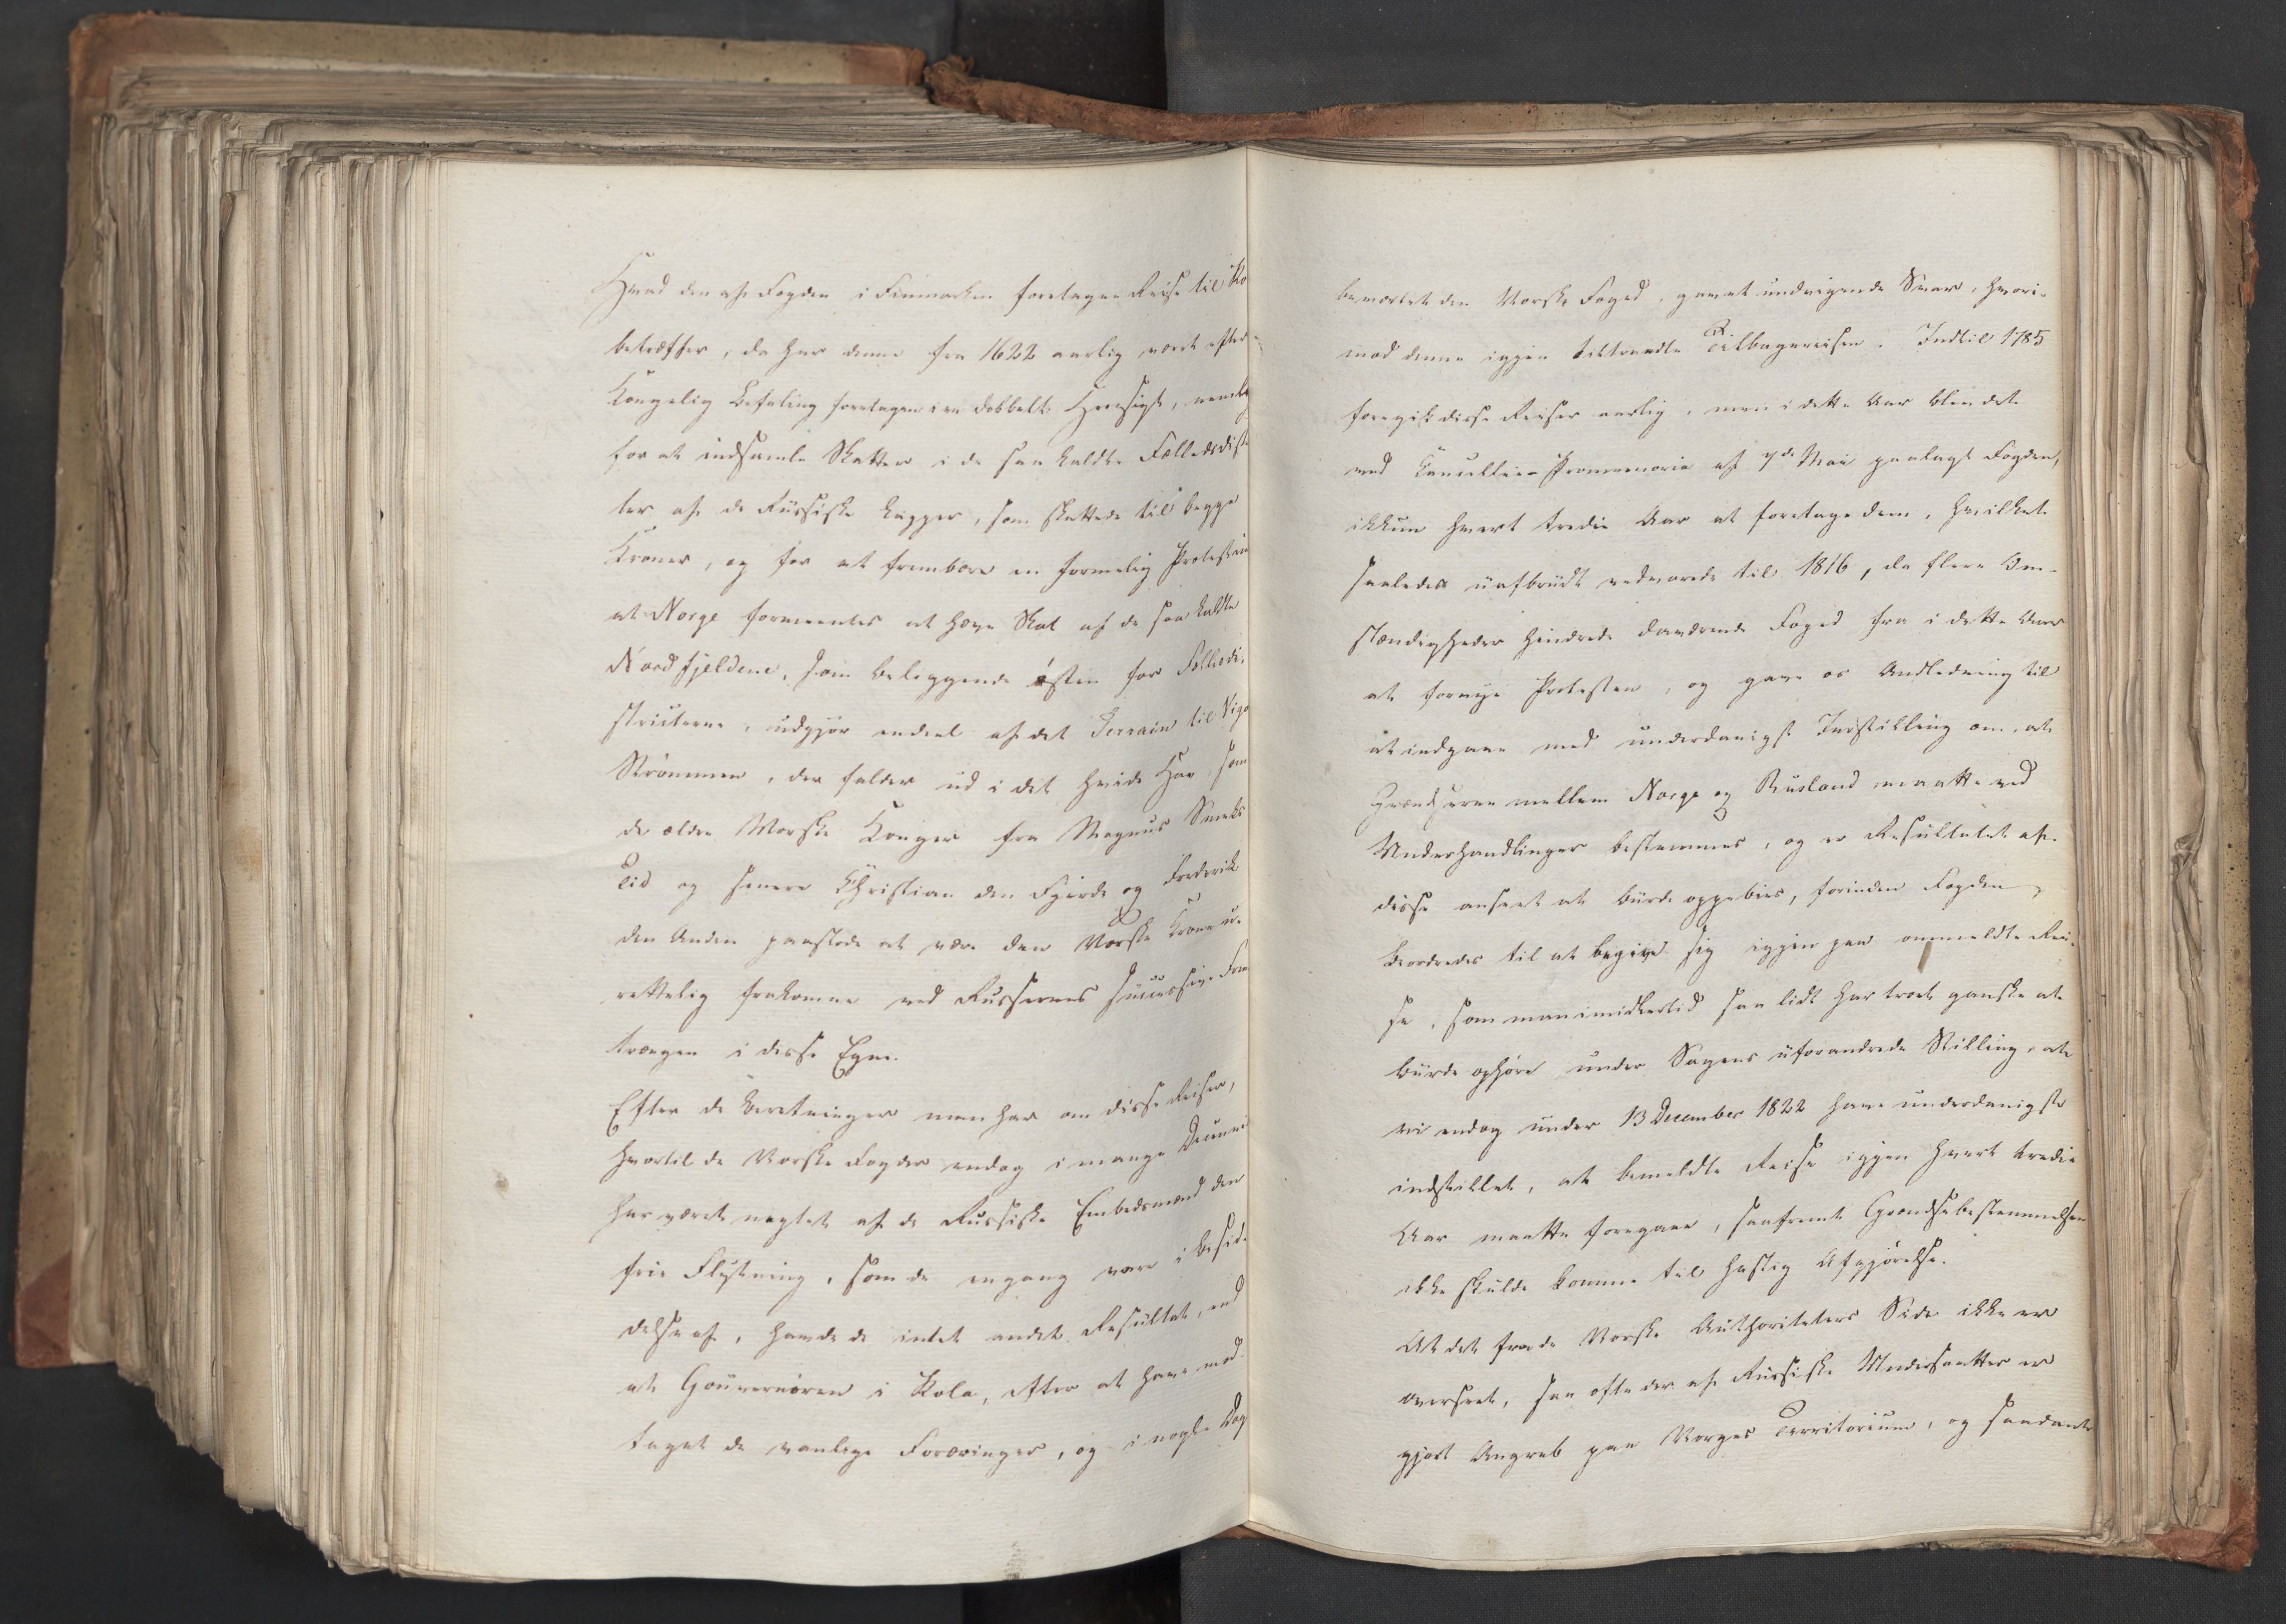 Hvad den af Fogden i Finmarken foretagne Reise til Ko
betræffer, da har denne fra 1622 aarlig været efter
Kongelig Befaling foretagen i en dobbelt Hensigt, nemlig
for at indsamle Skatter i de saa kaldte Fælledsdist
ter af de Russiske Lapper, som skattede til begge
Kroner, og for at frembære en formelig Protest
at Norge formeentes at hæve Skat af de saa kaldte
Nordfjeldene, som beliggende østen for Fællesdi-
stricterne, udgjør endeel af det Terrain til Viga
Strømmen, der falder ud i det hvide Hav, som
de ældre Norske Konger fra Magnus Smeks
Tid og senere Christian den Fjerde og Frederik
den Anden paastode at være den Norske Krone u-
rettelig frakomne ved Russernes successive Frem
trængen i disse Egne.
Efter de Beretninger man har om disse Reiser,
hvortil de Norske Fogder endog i mange Decenni
har været negtet af de Russiske Embedsmænd den
frie Skydsning, som de engang vare i Besid-
delse af, havde de intet andet Resultat, end
at Gouverneuren i Kola, efter at have mod-
taget de vanlige Foræringer, og i nogle Dag
beværtet den Norske Foged, gav et undvigende Svar, hvori-
mod denne igjen tiltraadte Tilbagereisen. Indtil 1785
foregik disse Reiser aarlig, men i dette Aar blev det
ved Cancellie-Promemoria af 7de Mai paalagt Fogden,
ikkun hvert tredie Aar at foretage dem, hvilket
saaledes uafbrudt vedvarede til 1816, da flere Om-
stændigheder hindrede daværende Foged fra i dette Aar
at fornye Protesten, og gave os Andledning til
at indgaae med underdanigst Indstilling om, at
Grændserne mellem Norge og Rusland maatte ved
Underhandlinger bestemmes, og er Resultatet af
disse anseet at burde oppebies, forinden Fogden
beordredes til at begive sig igjen paa ommeldte Rei-
se, som man imidlertid saa lidt har troet ganske at
burde ophøre under Sagens uforandrede Stilling, at
vi endog under 13 December 1822 have underdanigst
indstillet, at bemeldte Reise igjen hvert tredie
Aar maatte foregaae, saafremt Grændsebestemmelsen
ikke skulde komme til hastig Afgjørelse.
At det fra de Norske Authoriteters Side ikke er
overseet, saa ofte der af Russiske Undersaatter er
gjort Angreb paa Norges Territorium, og saadant